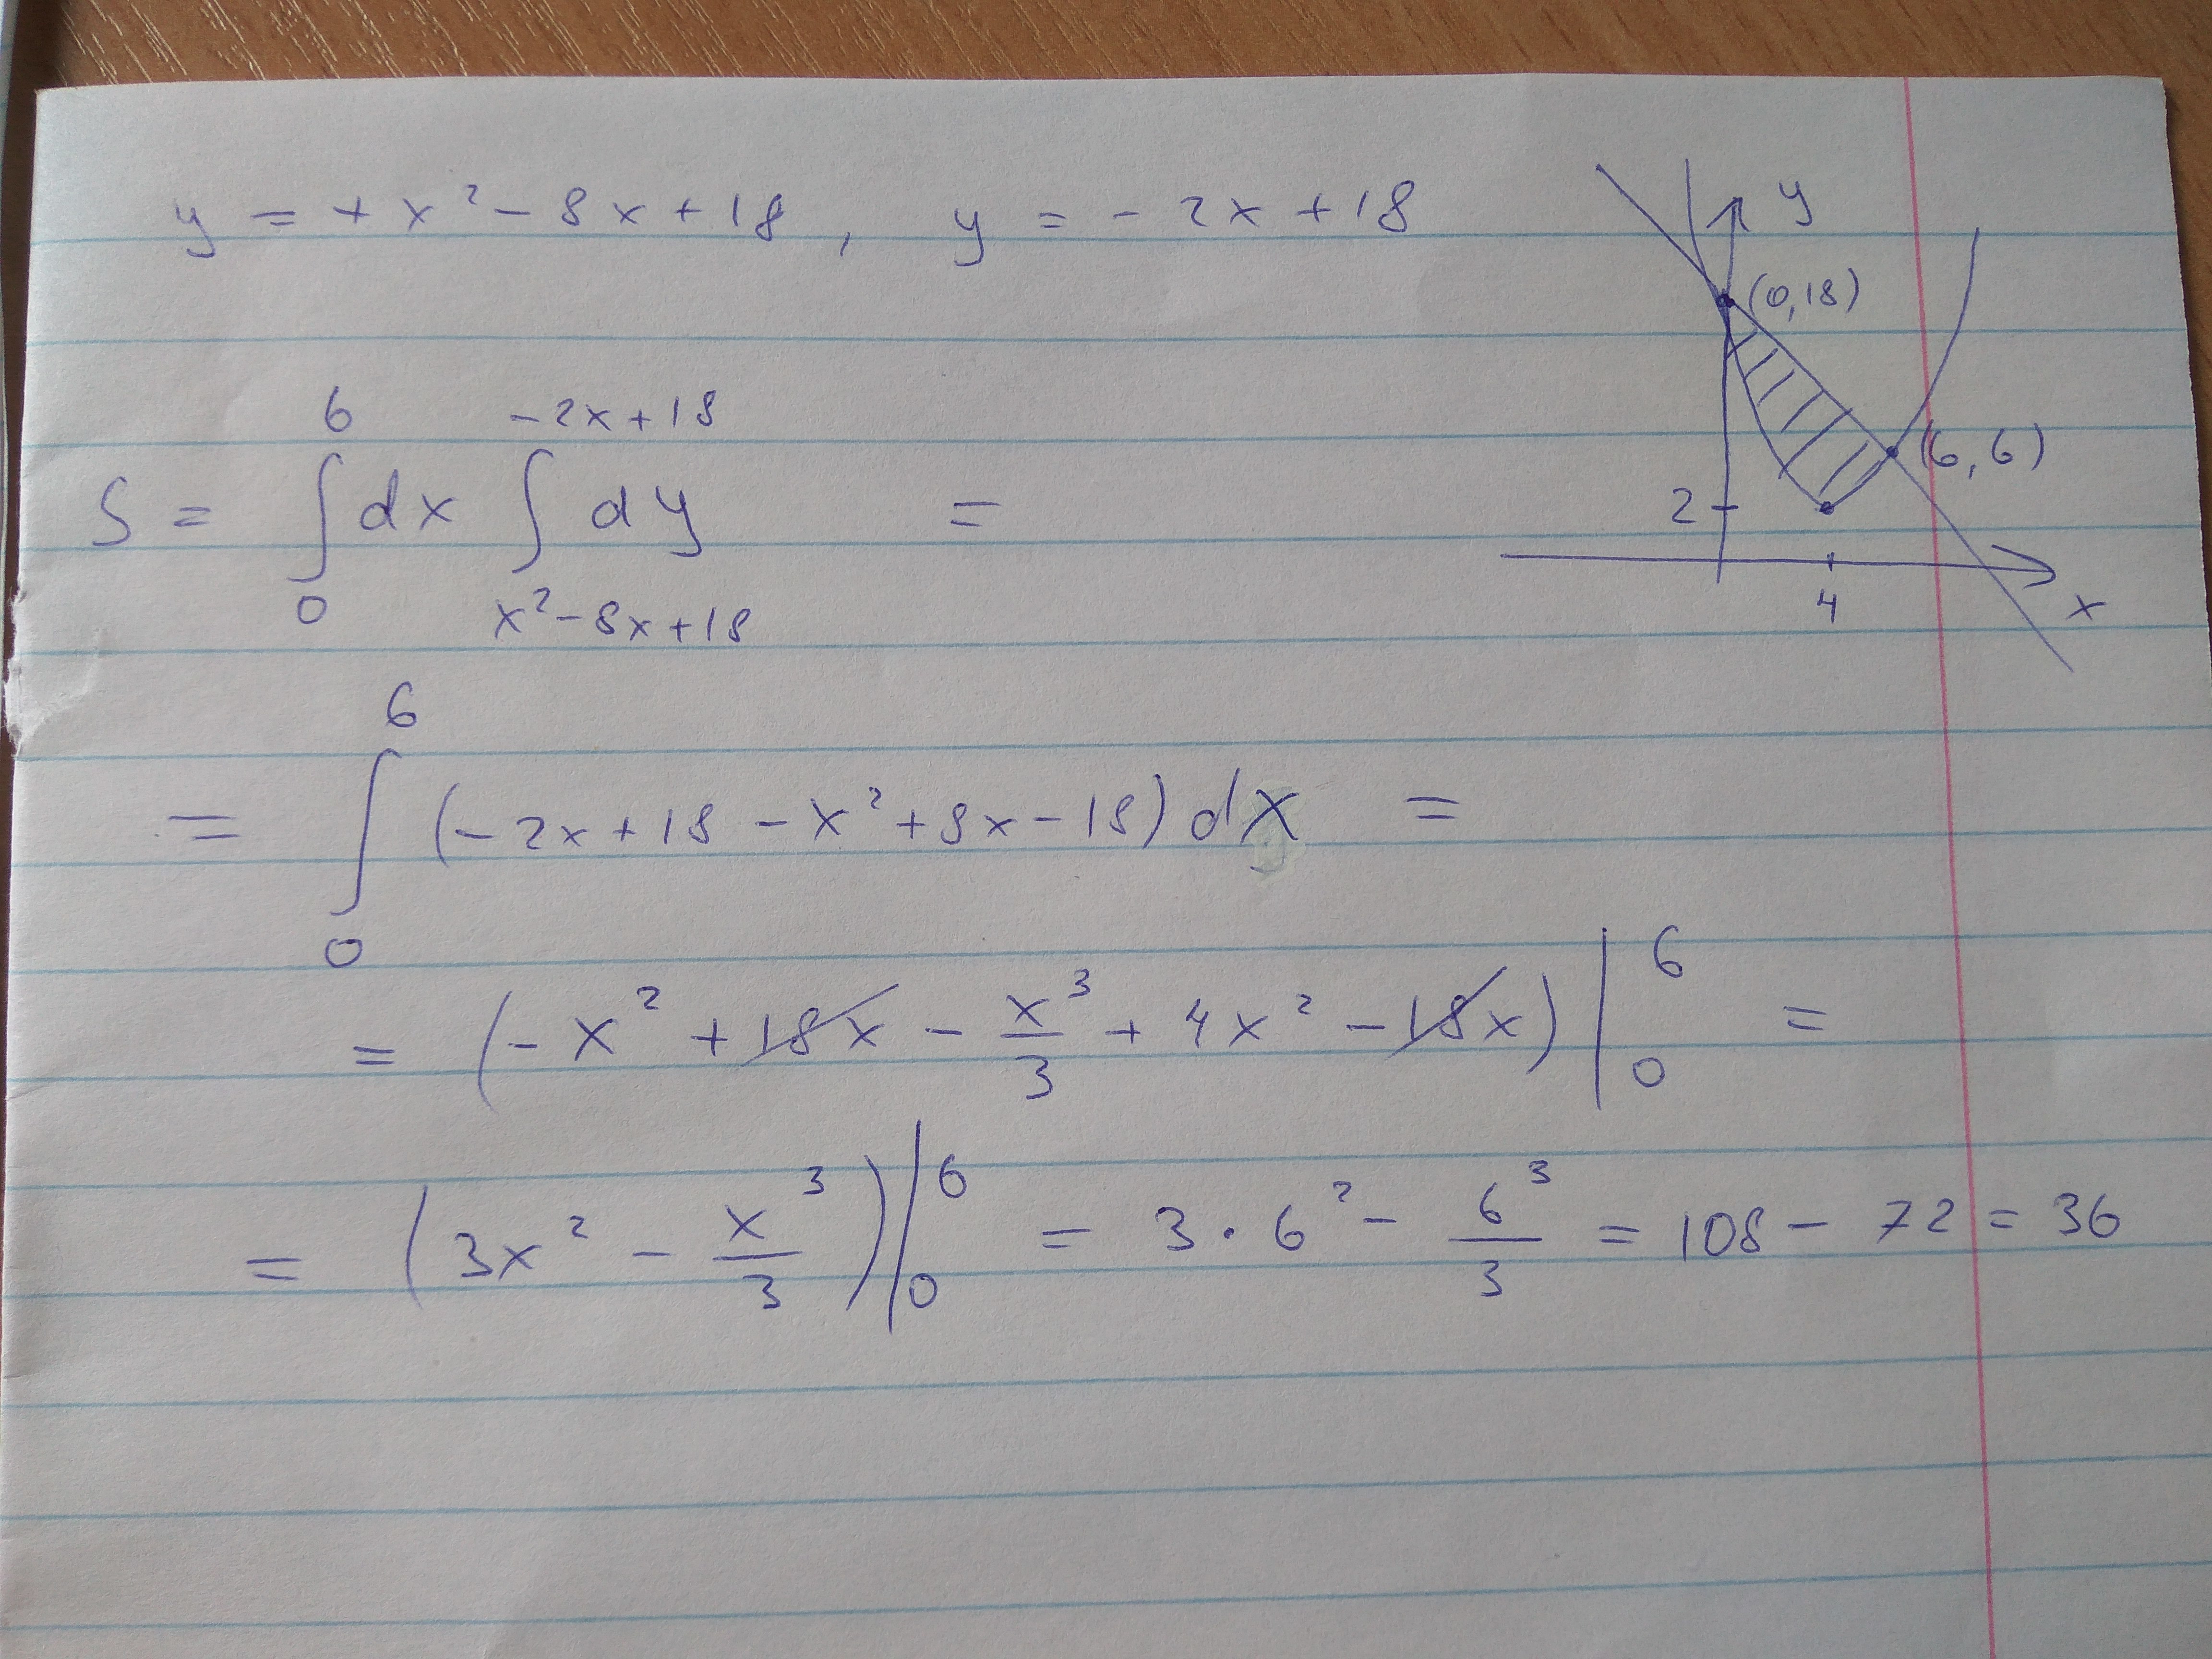 y = + x² - 8x + 18 , y = - 2x + 18
y
(0,18)
(6,6)
2
4
x
6 -2x+18
S = ∫ dx ∫ dy =
0 x²-8x+18
6
= ∫ (-2x+18-x²+8x-18) dx =
0
= (-x² + 18x - x³/3 + 4x² - 18x) |₀⁶ =
= (3x² - x³/3) |₀⁶ = 3 · 6² - 6³/3 = 108 - 72 = 36